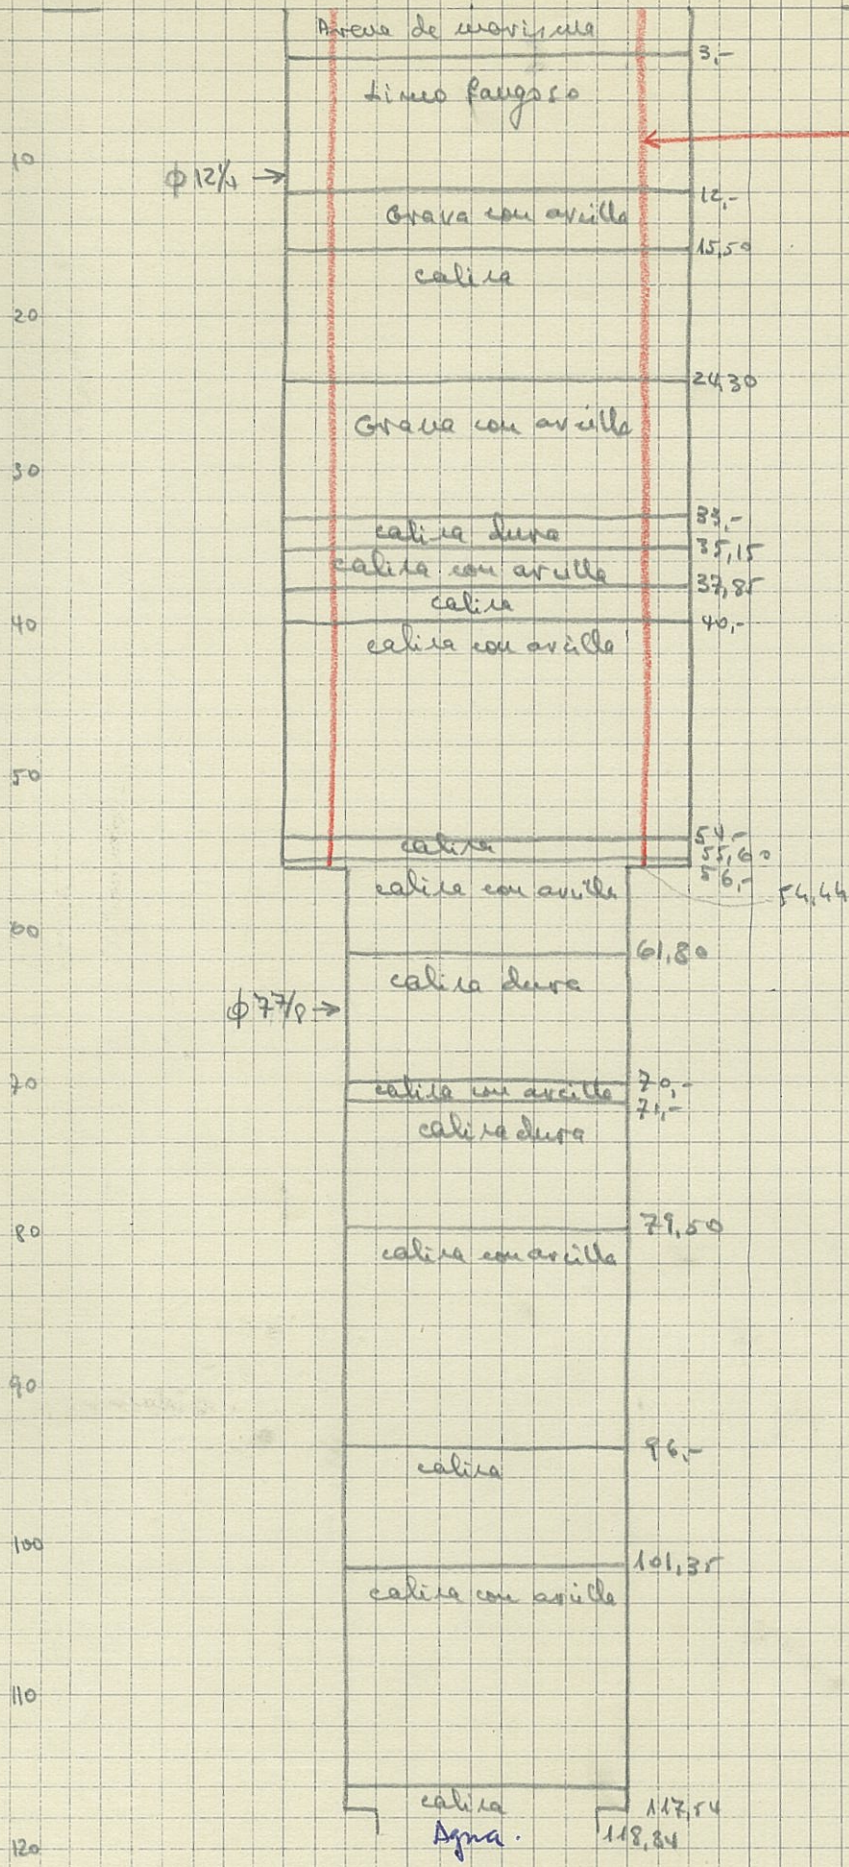 Arena de marisma
3,-
Limo fangoso
10
φ 12 1/4 →
12,-
Grava con arcilla
15,50
caliza
20
24,30
Grava con arcilla
30
33,-
caliza dura
35,15
caliza con arcilla
37,85
caliza
40
40,-
caliza con arcilla
50
54,-
caliza
55,60
56,-
caliza con arcilla
54,44
60
61,80
caliza dura
φ 7 7/8 →
70
70,-
caliza con arcilla
71,-
caliza dura
79,50
80
caliza con arcilla
90
96,-
caliza
100
101,35
caliza con arcilla
110
caliza
117,54
Agua.
118,84
120